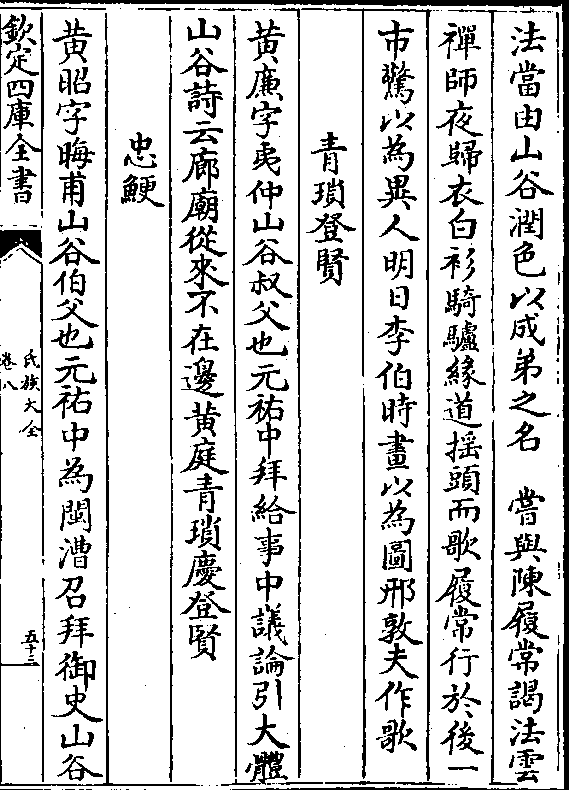 法當由山谷潤色以成弟之名　嘗與陳履常謁法雲
禪師夜歸衣白衫騎驢緣道揺頭而歌履常行於後一
市驚以為異人明日李伯時畫以為圖邢敦夫作歌
青瑣登賢
黄廉字夷仲山谷叔父也元祐中拜給事中議論引大體
山谷詩云廊廟從來不在邊黄庭青瑣慶登賢
忠鯁
黄昭字晦甫山谷伯父也元祐中為閩漕召拜御史山谷
欽定四庫全書
氏族大全
卷八
五十三